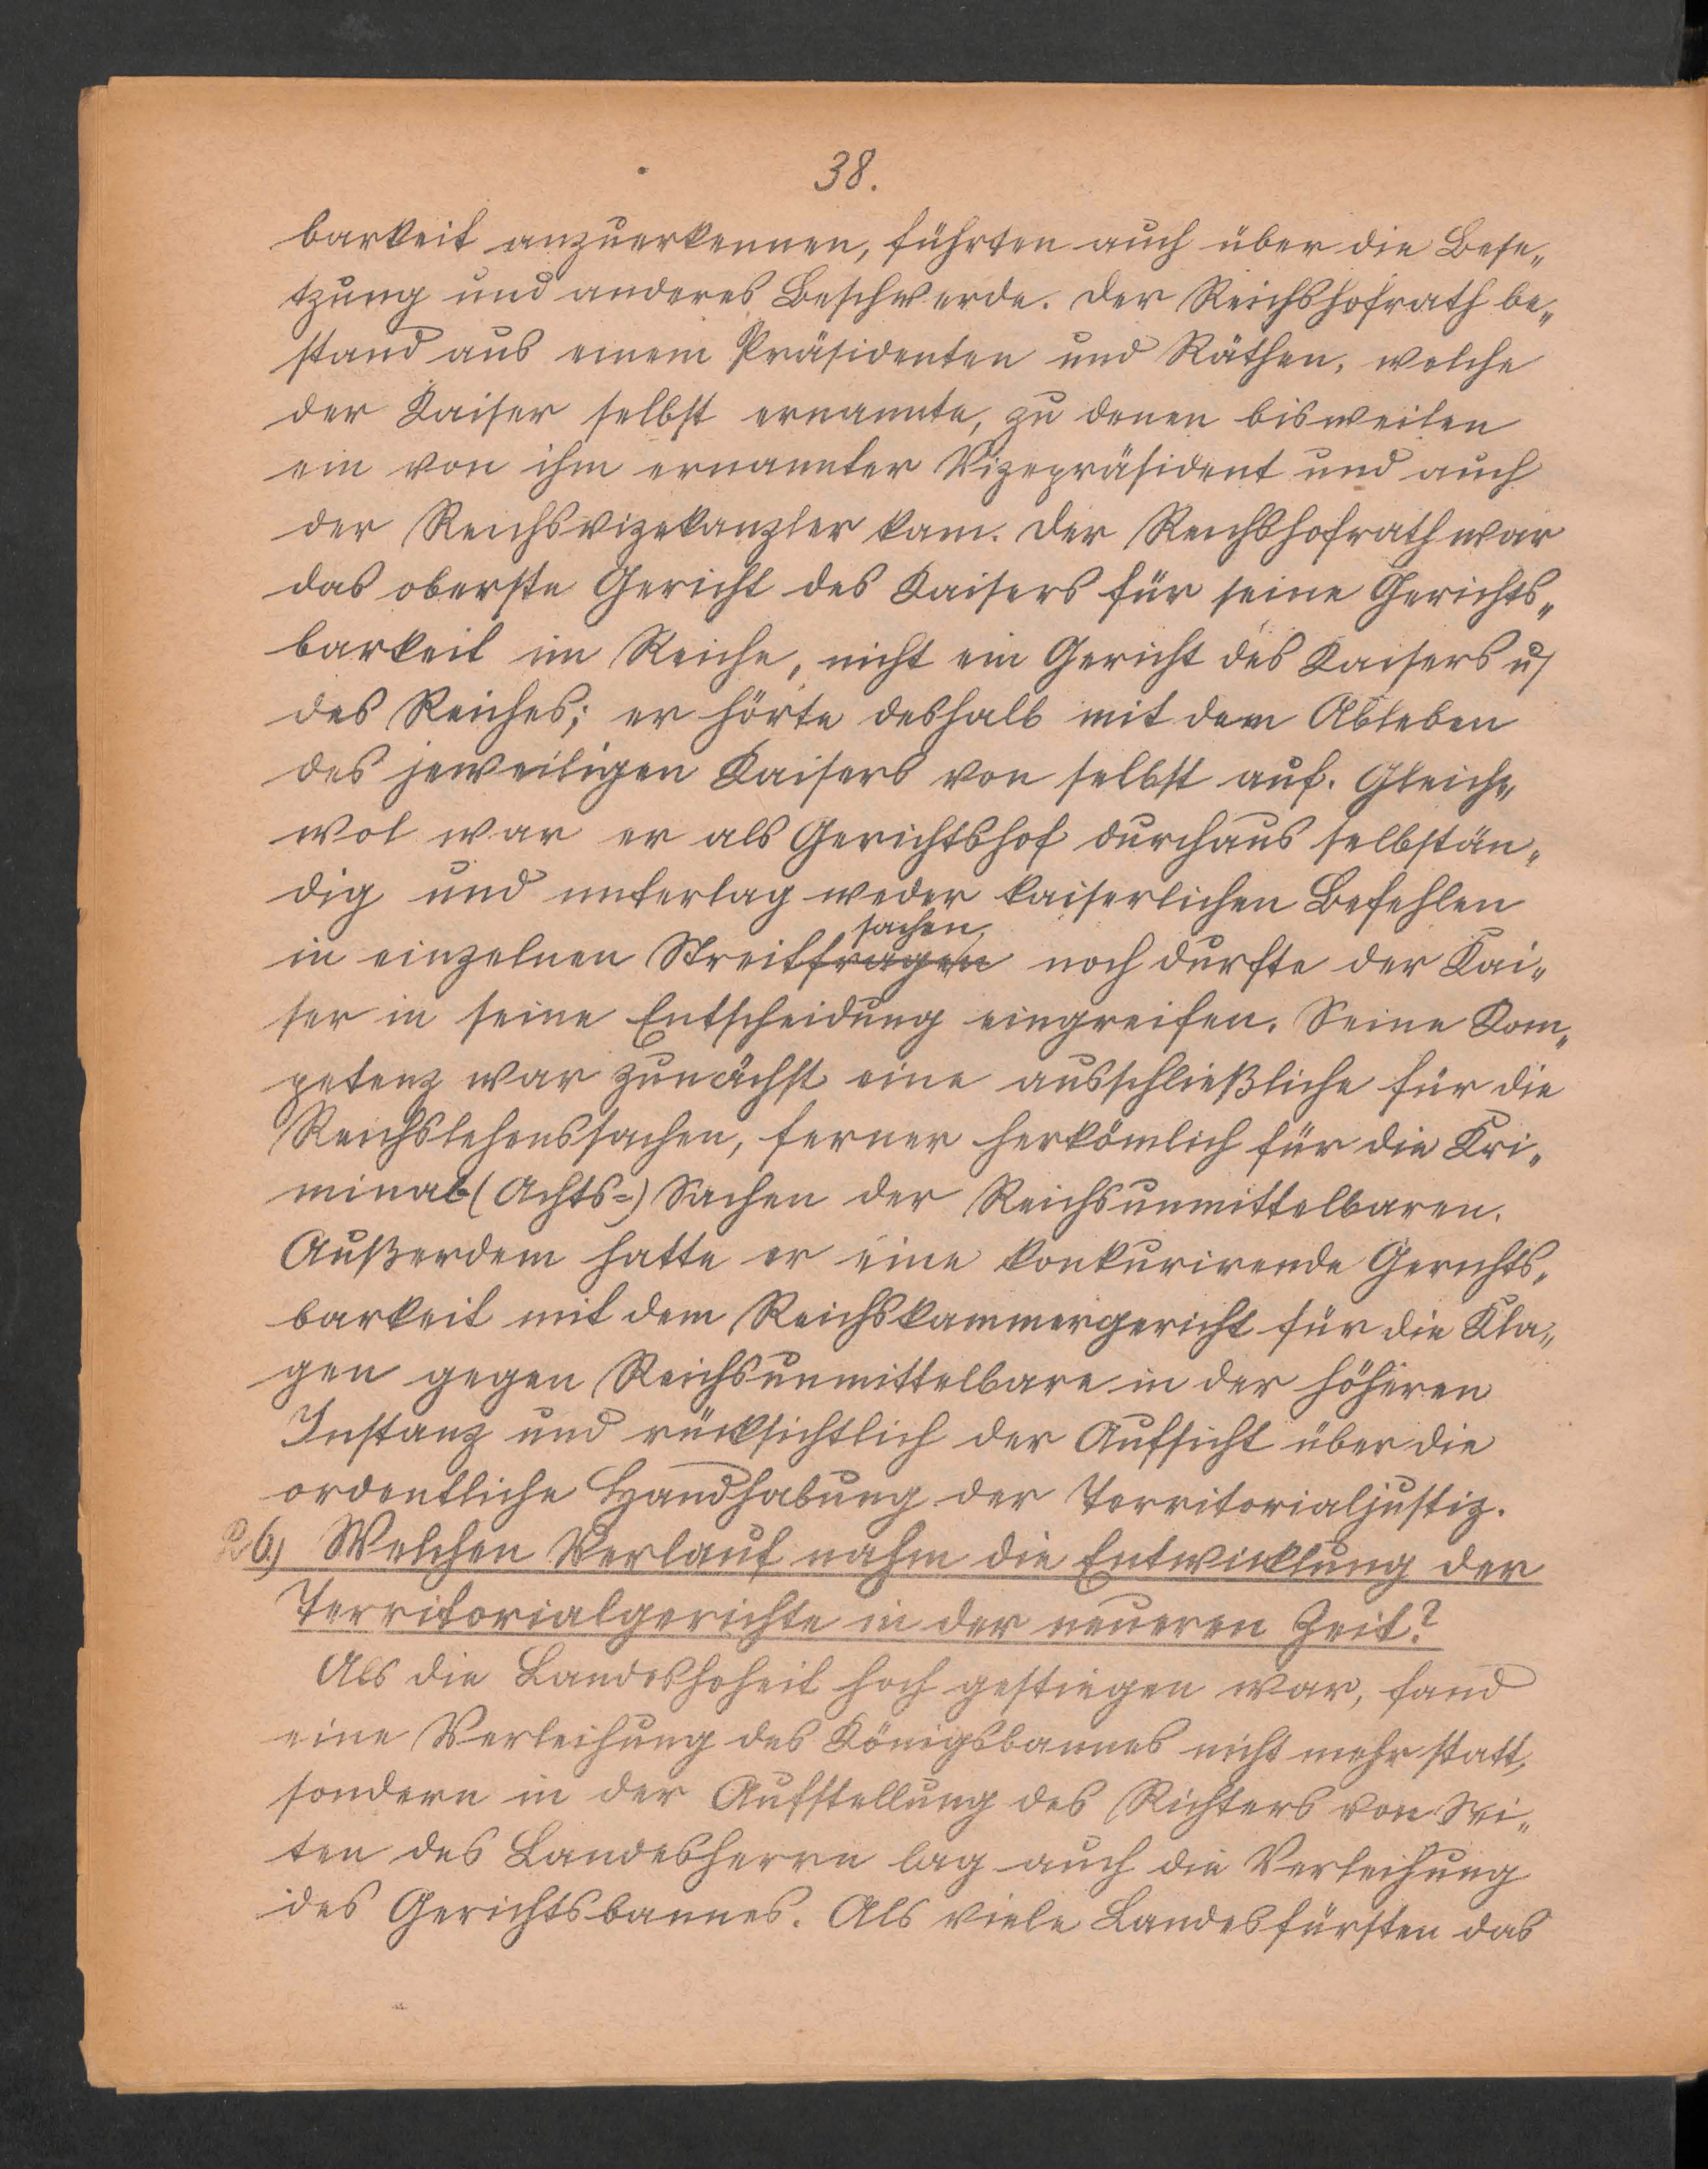 38.
barkeit anzuerkennen, führten auch über die Bese„
tzung und anderes Beschwerde. Der Reichshofrath be„
stand aus einem Präsidenten und Räthen, welche
der Kaiser selbst ernannte, zu denen bisweilen
ein von ihm ernannter Vizepräsident und auch
der Reichsvizekanzler kam. Der Reichshofrath war
das oberste Gericht des Kaisers für seine Gerichts„
barkeit im Reiche, nicht ein Gericht des Kaisers u/
des Reiches; er hörte deshalb mit dem Ableben
des jeweiligen Kaisers von selbst auf. Gleich„
wol war er als Gerichtshof durchaus selbstän„
dig und unterlag weder kaiserlichen Befehlen
sachen,
in einzelnen Streitfragen noch durfte der Kai„
ser in seine Entscheidung eingreifen. Seine Kom„
petenz war zunächst eine ausschließliche für die
Reichslehenssachen, ferner herkömlich für die Kri„
minal-(Achts-) Sachen der Reichsunmittelbaren.
Außerdem hatte er eine konkurirende Gerichts„
barkeit mit dem Reichskammergericht für die Kla„
gen gegen Reichsunmittelbare in der höheren
Instanz und rücksichtlich der Aufsicht über die
ordentliche Handhabung der Territorialjustiz.
26.) Welchen Verlauf nahm die Entwicklung der
Territorialgerichte in der neueren Zeit?
Als die Landeshoheit hoch gestiegen war, fand
eine Verleihung des Königsbannes nicht mehr statt,
sondern in der Aufstellung des Richters von Sei„
ten des Landesherrn lag auch die Verleihung
des Gerichtsbannes. Als viele Landesfürsten das